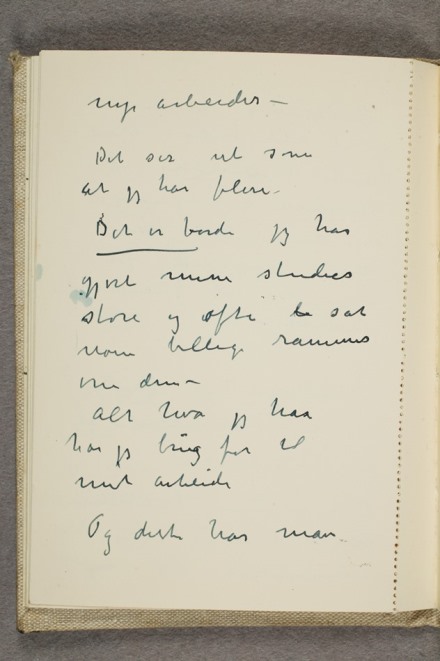 nye arbeider –
Det ser ut som
at jeg har flere.
Det er borde jeg har
gjort mine studies
store og ofte sat
nom billige rammes
om dem –
alt hva jeg haa
har jeg brug for til
mit arbeide
Og dette har man